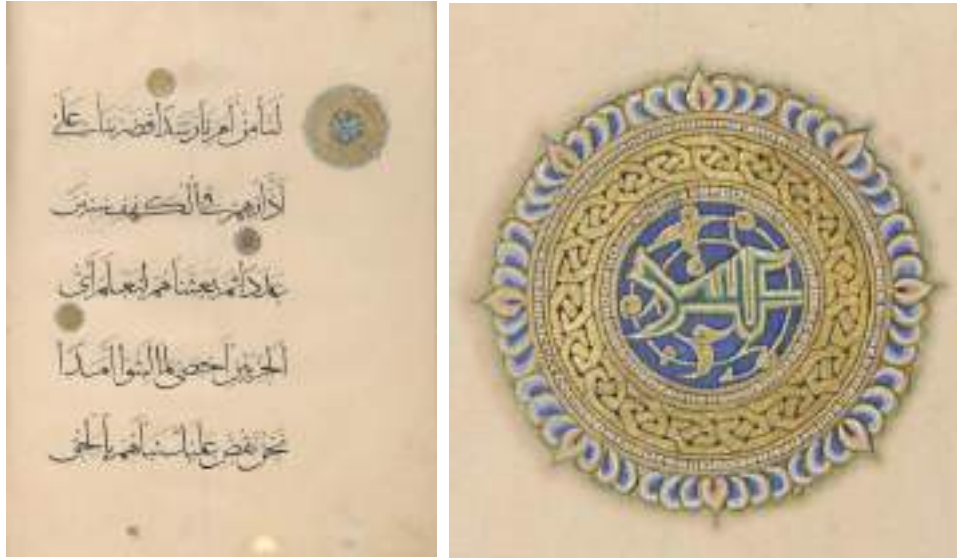 لنا من أمرنا رشدا فضربنا على
آذانهم في الكهف سنين
عددا ثم بعثناهم لنعلم أي
الحزبين أحصى لما لبثوا أمدا
نحن نقص عليك نبأهم بالحق